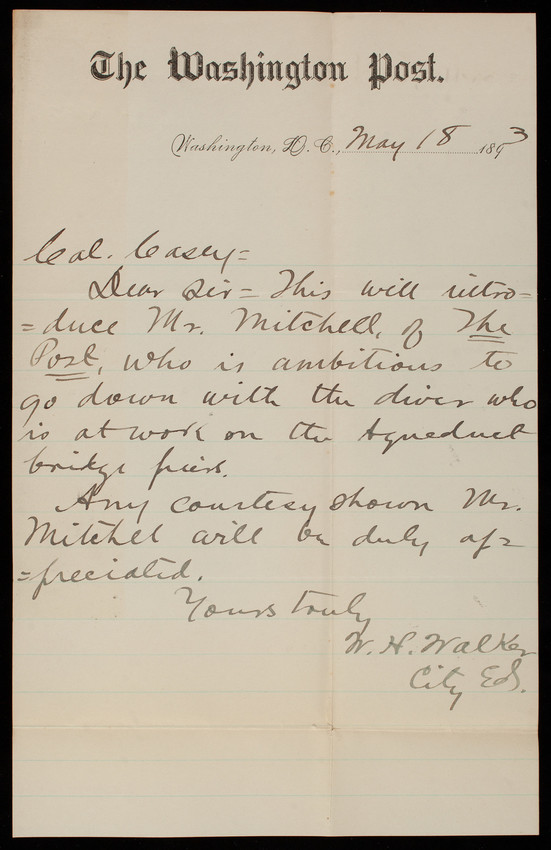 The Washington Post.
Washington, D. C., May 18 1893
Col. Casey=
Dear Sir= This will intro=
=duce Mr. Mitchell, of The
Post, who is ambitious to
go down with the diver who
is at work on the Aqueduct
bridge piers.
Any courtesy shown Mr.
Mitchel will be duly ap=
=preciated.
Yours truly
W. H. Walker
City Ed.